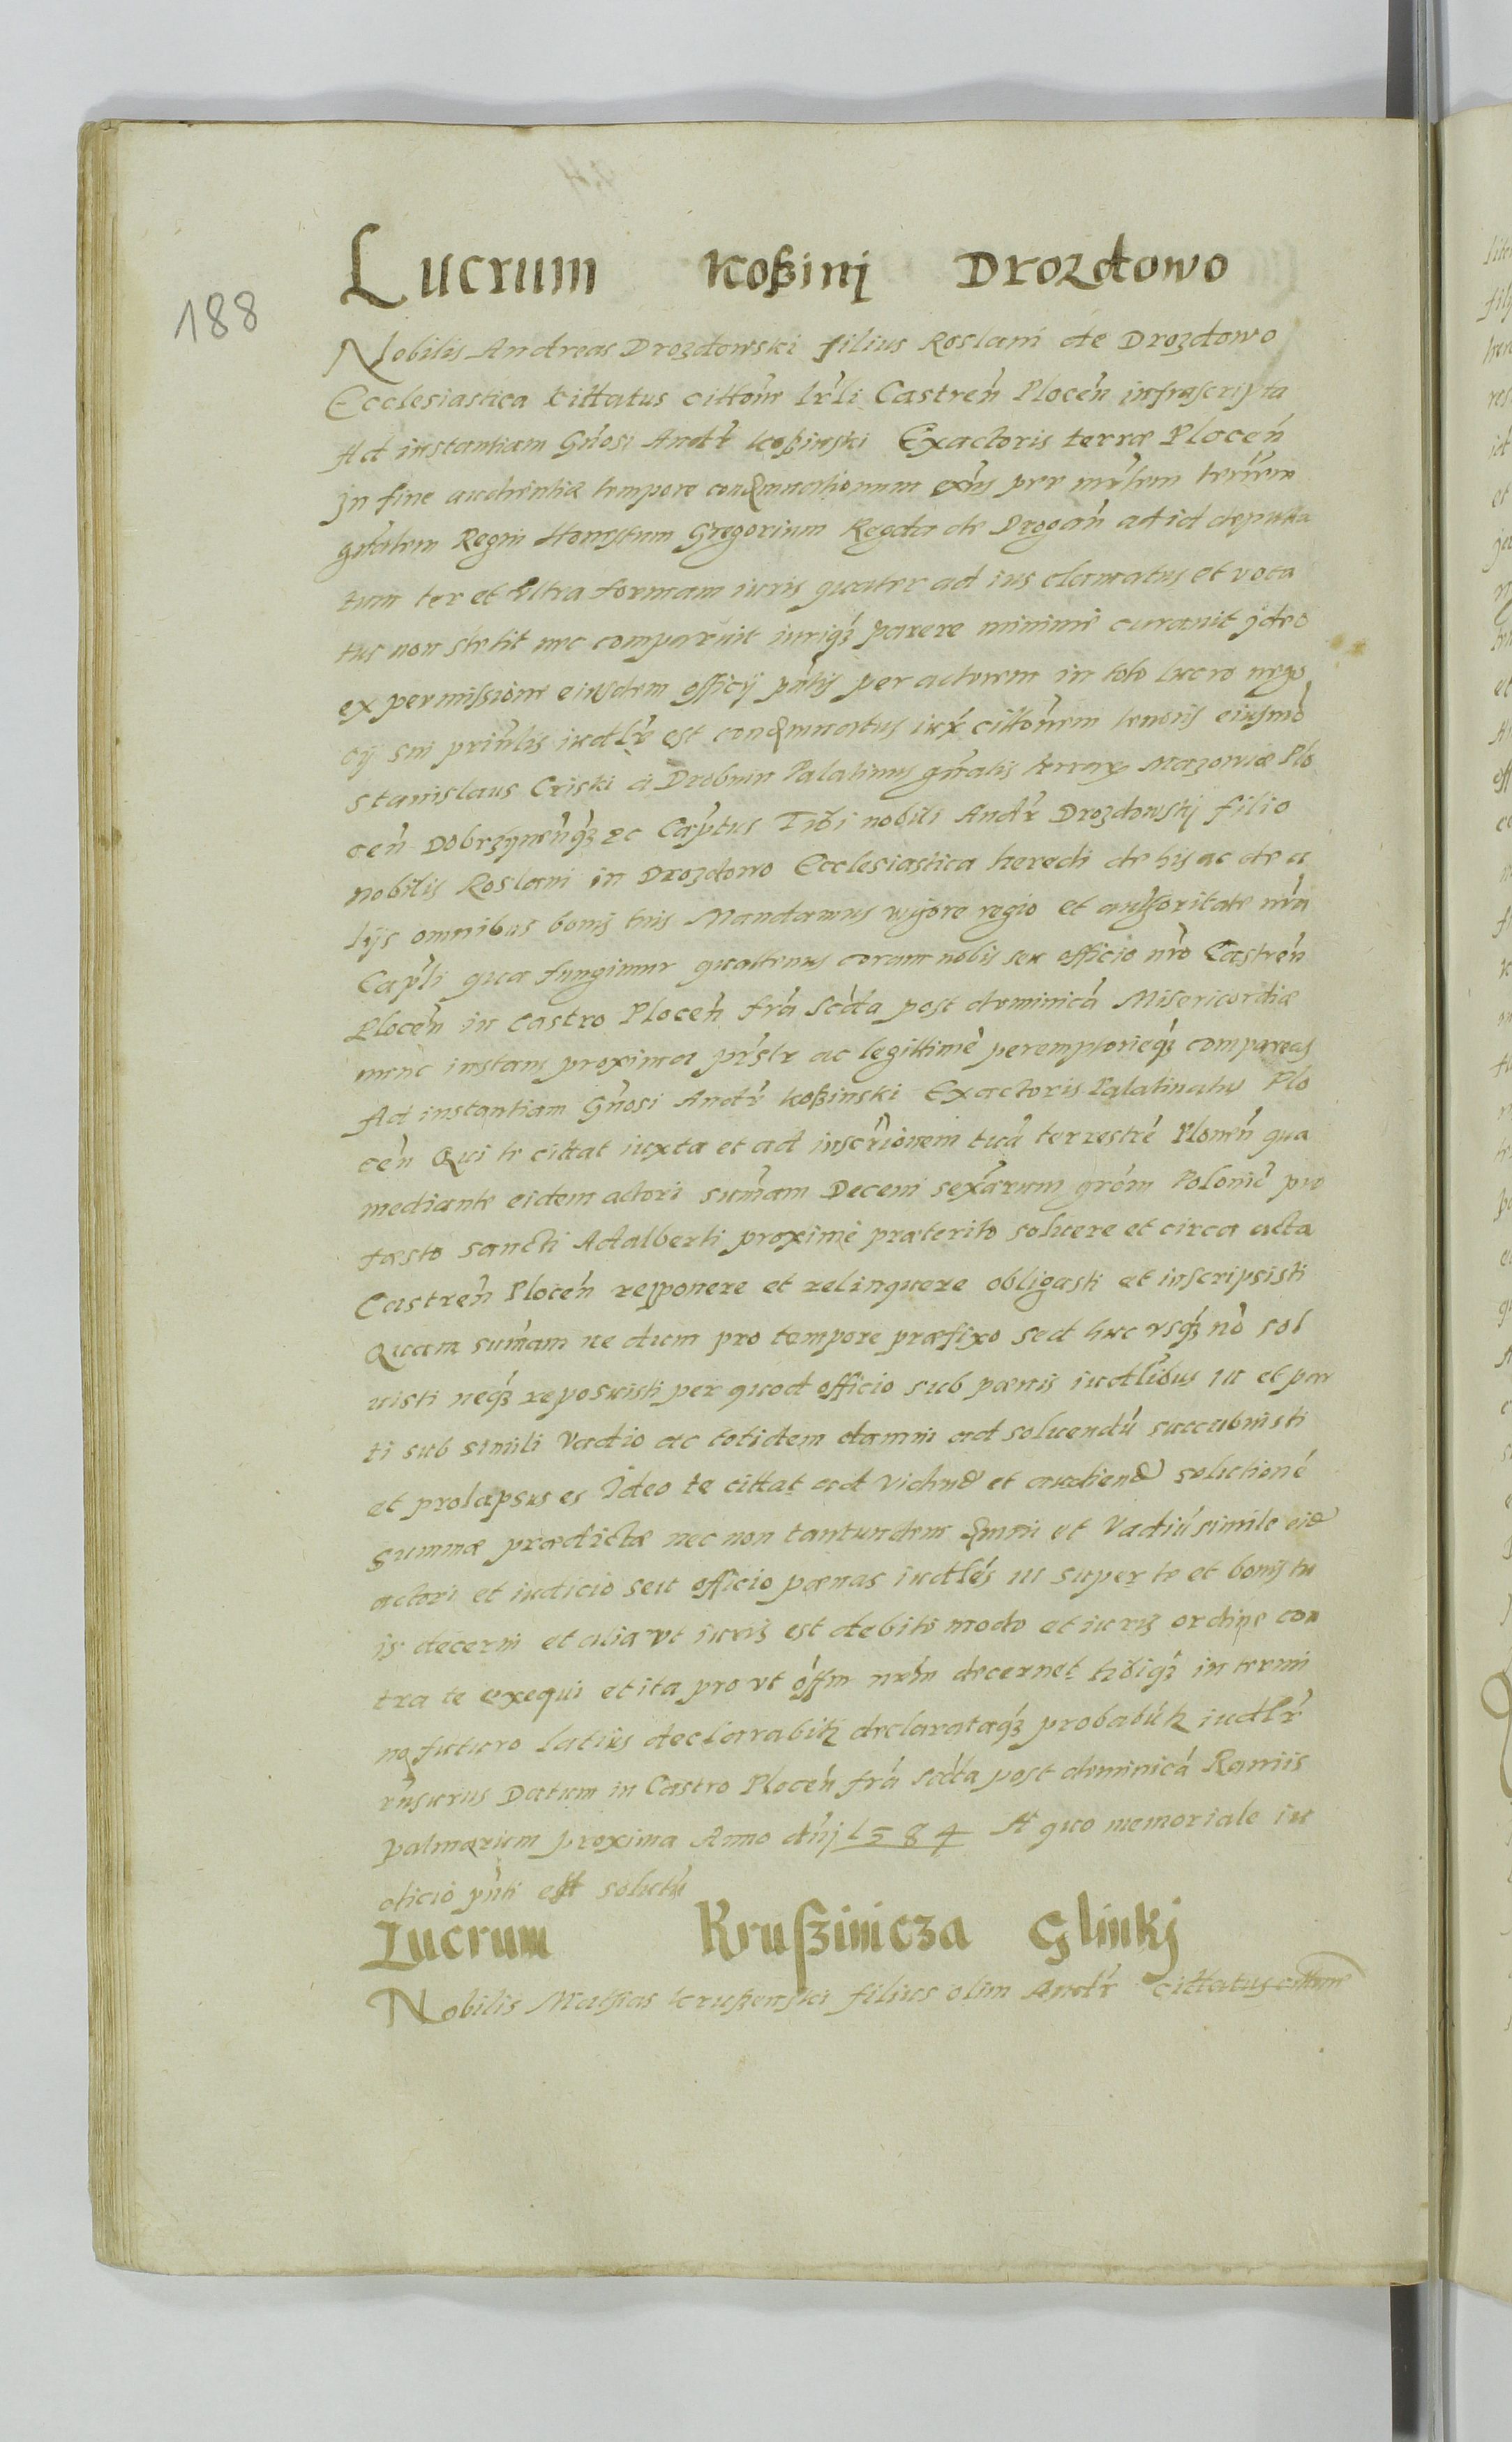 188
Lucrum Koßinj Drozdowo
Nobilis Andreas Drozdowski filius Roslani de Drozdowo
Ecclesiastica cittatus cittone lrli Castren Plocen infrascripta
Ad instantiam Gnosi Andr Koßinski Exactoris terræ Plocen
In fine audientiæ tempore condemnationum per terrem
gnalem Regni Honestum Gregorium Regda de Drogan ad id deputa
tum ter et Vltra formam iuris quater ad ius clamatus et voca
tus non stetit nec comparuit iuriq3 parere minime curauit jdeo
ex permissione eiusdem officij pntis per actorem in toto lucro nego
cij sui prinlis iudlr est condemnatus iux cittonem tenoris eiusmo
Stanislaus Criski a Drobnin Palatinus gnralis terrar Mazowiæ Plo
cen Dobrzynenq3 ec Captus Tibi nobili Andr Drozdowskj filio
nobilis Roslani in Drozdowo Ecclesiastica heredi de his ac de a
lijs omnibus bonis tuis Mandamus vigore regio et authoritate nra
Capli qua fungimur quattenus coram nobis seu officio nro Castren
Plocen in Castro Plocen fra Scda post dominica Misericordiæ
nunc instans proxima prslr ac legittime peremptorieq3 compareas
Ad instantiam Gnosi Andr Koßinski Exactoris Palatinatus Plo
cen Qui te cittat iuxta et ad inscrionem tua terrestre Plonen qua
mediante eidem actori sumam Decem sexarum grom Polonie pro
fæsto sancti Adalberti proxime præterito soluere et circa acta
Castren Plocen reponere et relinquere obligasti et inscripsisti
Quam sumam ne dum pro tempore præfixo sed huc vsq3 no sol
uisti neq3 reposuisti per quod officio sub pænis iudlibus iii et par
ti sub simili Vadio ac totidem damni ad soluendu succubuisti
et prolapsus es Ideo te cittat ad Vidend et audiend solutione
summæ prædictæ nec non tantundem damni et Vadiu simile eid
actori et iudicio seu officio pænas iudles iii super te et bonis tu
is decerni et alia vt iuris est debito modo et iuris ordine con
tra te exequi et ita pro vt offm nrm decernet tibiq3 in termi
no futuro latius declarabit declarataq3 probabut iudlr
rnsurus Datum in Castro Plocen fra Scda post dominica Ramis
palmarum proxima Anno dnj 1584 A quo memoriale iu
dicio pnti est solutu
Lucrum Krußinicza Glinkj
Nobilis Mathias Krußenski filius olim Andr cittatus cittone